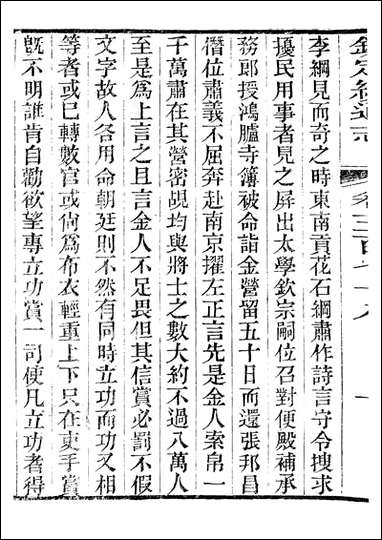 欽定續通志
李綱見而奇之時東南貢花石綱肅作詩言守令搜求
擾民用事者見之屏出太學欽宗嗣位召對便殿補承
務郎授鴻臚寺簿被命詣金營留五十日而還張邦昌
僭位肅義不屈奔赴南京擢左正言先是金人索帛一
千萬肅在其營密覘均與將士之數大約不過八萬人
至是為上言之且言金人不足畏但其信賞必罰不假
文字故人各用命朝廷則不然有同時立功而功又相
等者或已轉數官或尙爲布衣輕重上下只在吏手賞
旣不明誰肯自勸欲望專立功賞一司使凡立功者得